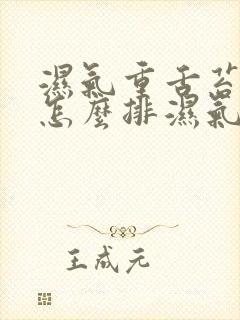 濕氣重舌苔
怎麼排濕氣
王成元